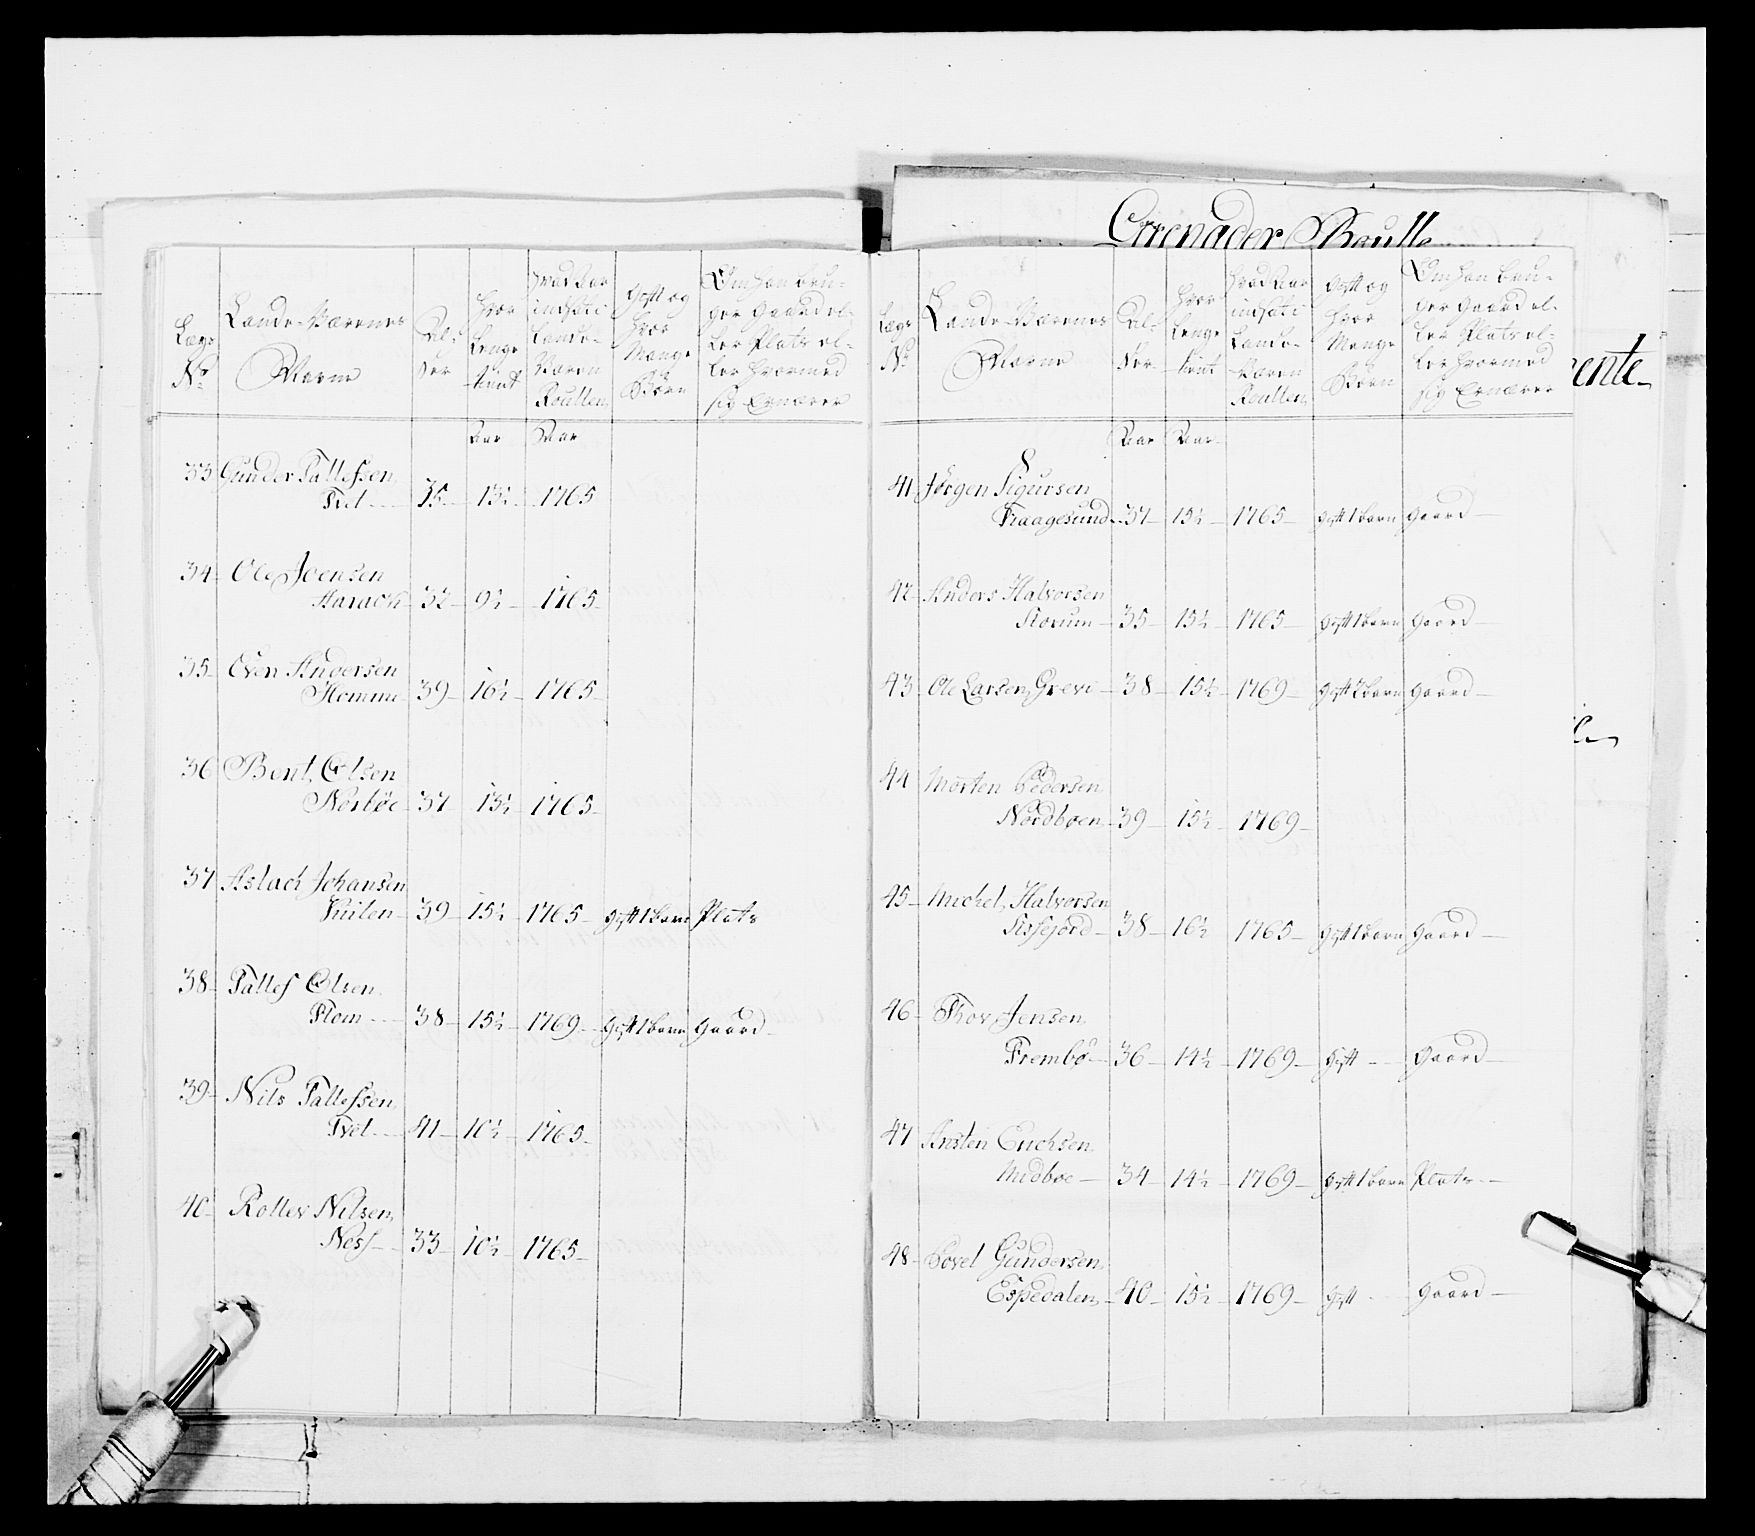 Grenader Roulle
Lægs No
Lande-Værnes Navne
Al-der
Hvor Lenge tient
Hvad Aar indsat i Lande-Væren Roullen
Gift og Hvor Mange Börn
Om han bru-ger Gaard el-ler Plats el-ler hvormed sig Ernærer
Aar Aar
33 Gunder Tallefsen
Tvet 35 13½ 1765
34 Ole Joensen
Aarack 32 9½ 1765
35 Even Andersen
Homme 39 16½ 1765
36 Bent Olsen
Norbøe 37 13½ 1765
37 Aslach Johansen
39 15½ 1765 gift 1 barn Plats
38 Tallef Olsen
Flom 38 15½ 1769 gift 1 barn Gaard
39 Nils Tallefsen
Tvet 41 10½ 1765
40 Rollev Nilsen
Ness 33 10½ 1765
Lægs No
Lande-Værnes Navne
Al-der
Hvor Lenge tient
Hvad Aar indsat i Lande-Væren Roullen
Gift og Hvor Mange Börn
Om han bru-ger Gaard el-ler Plats el-ler hvormed sig Ernærer
Aar Aar
41 Jörgen Sigursen
Traagesund 37 15½ 1765 gift 1 barn Gaard
42 Anders Halvorsen
35 15½ 1765 gift 1 barn Gaard
43 Ole Larsen Grevi 38 15½ 1769 gift 2 barn Gaard
44 Morten Pedersen
Nordboen 39 15½ 1769
45 Michel Halvorsen
38 16½ 1765 gift 1 barn Gaard
46 Thor Jensen
Frembø 36 14½ 1769 gift Gaard
47 Ansten Erichsen
Midbøe 34 14½ 1769 gift 1 barn Plats
48 Sovel Gundersen
Espedalen 40 15½ 1769 gift Gaard
ente